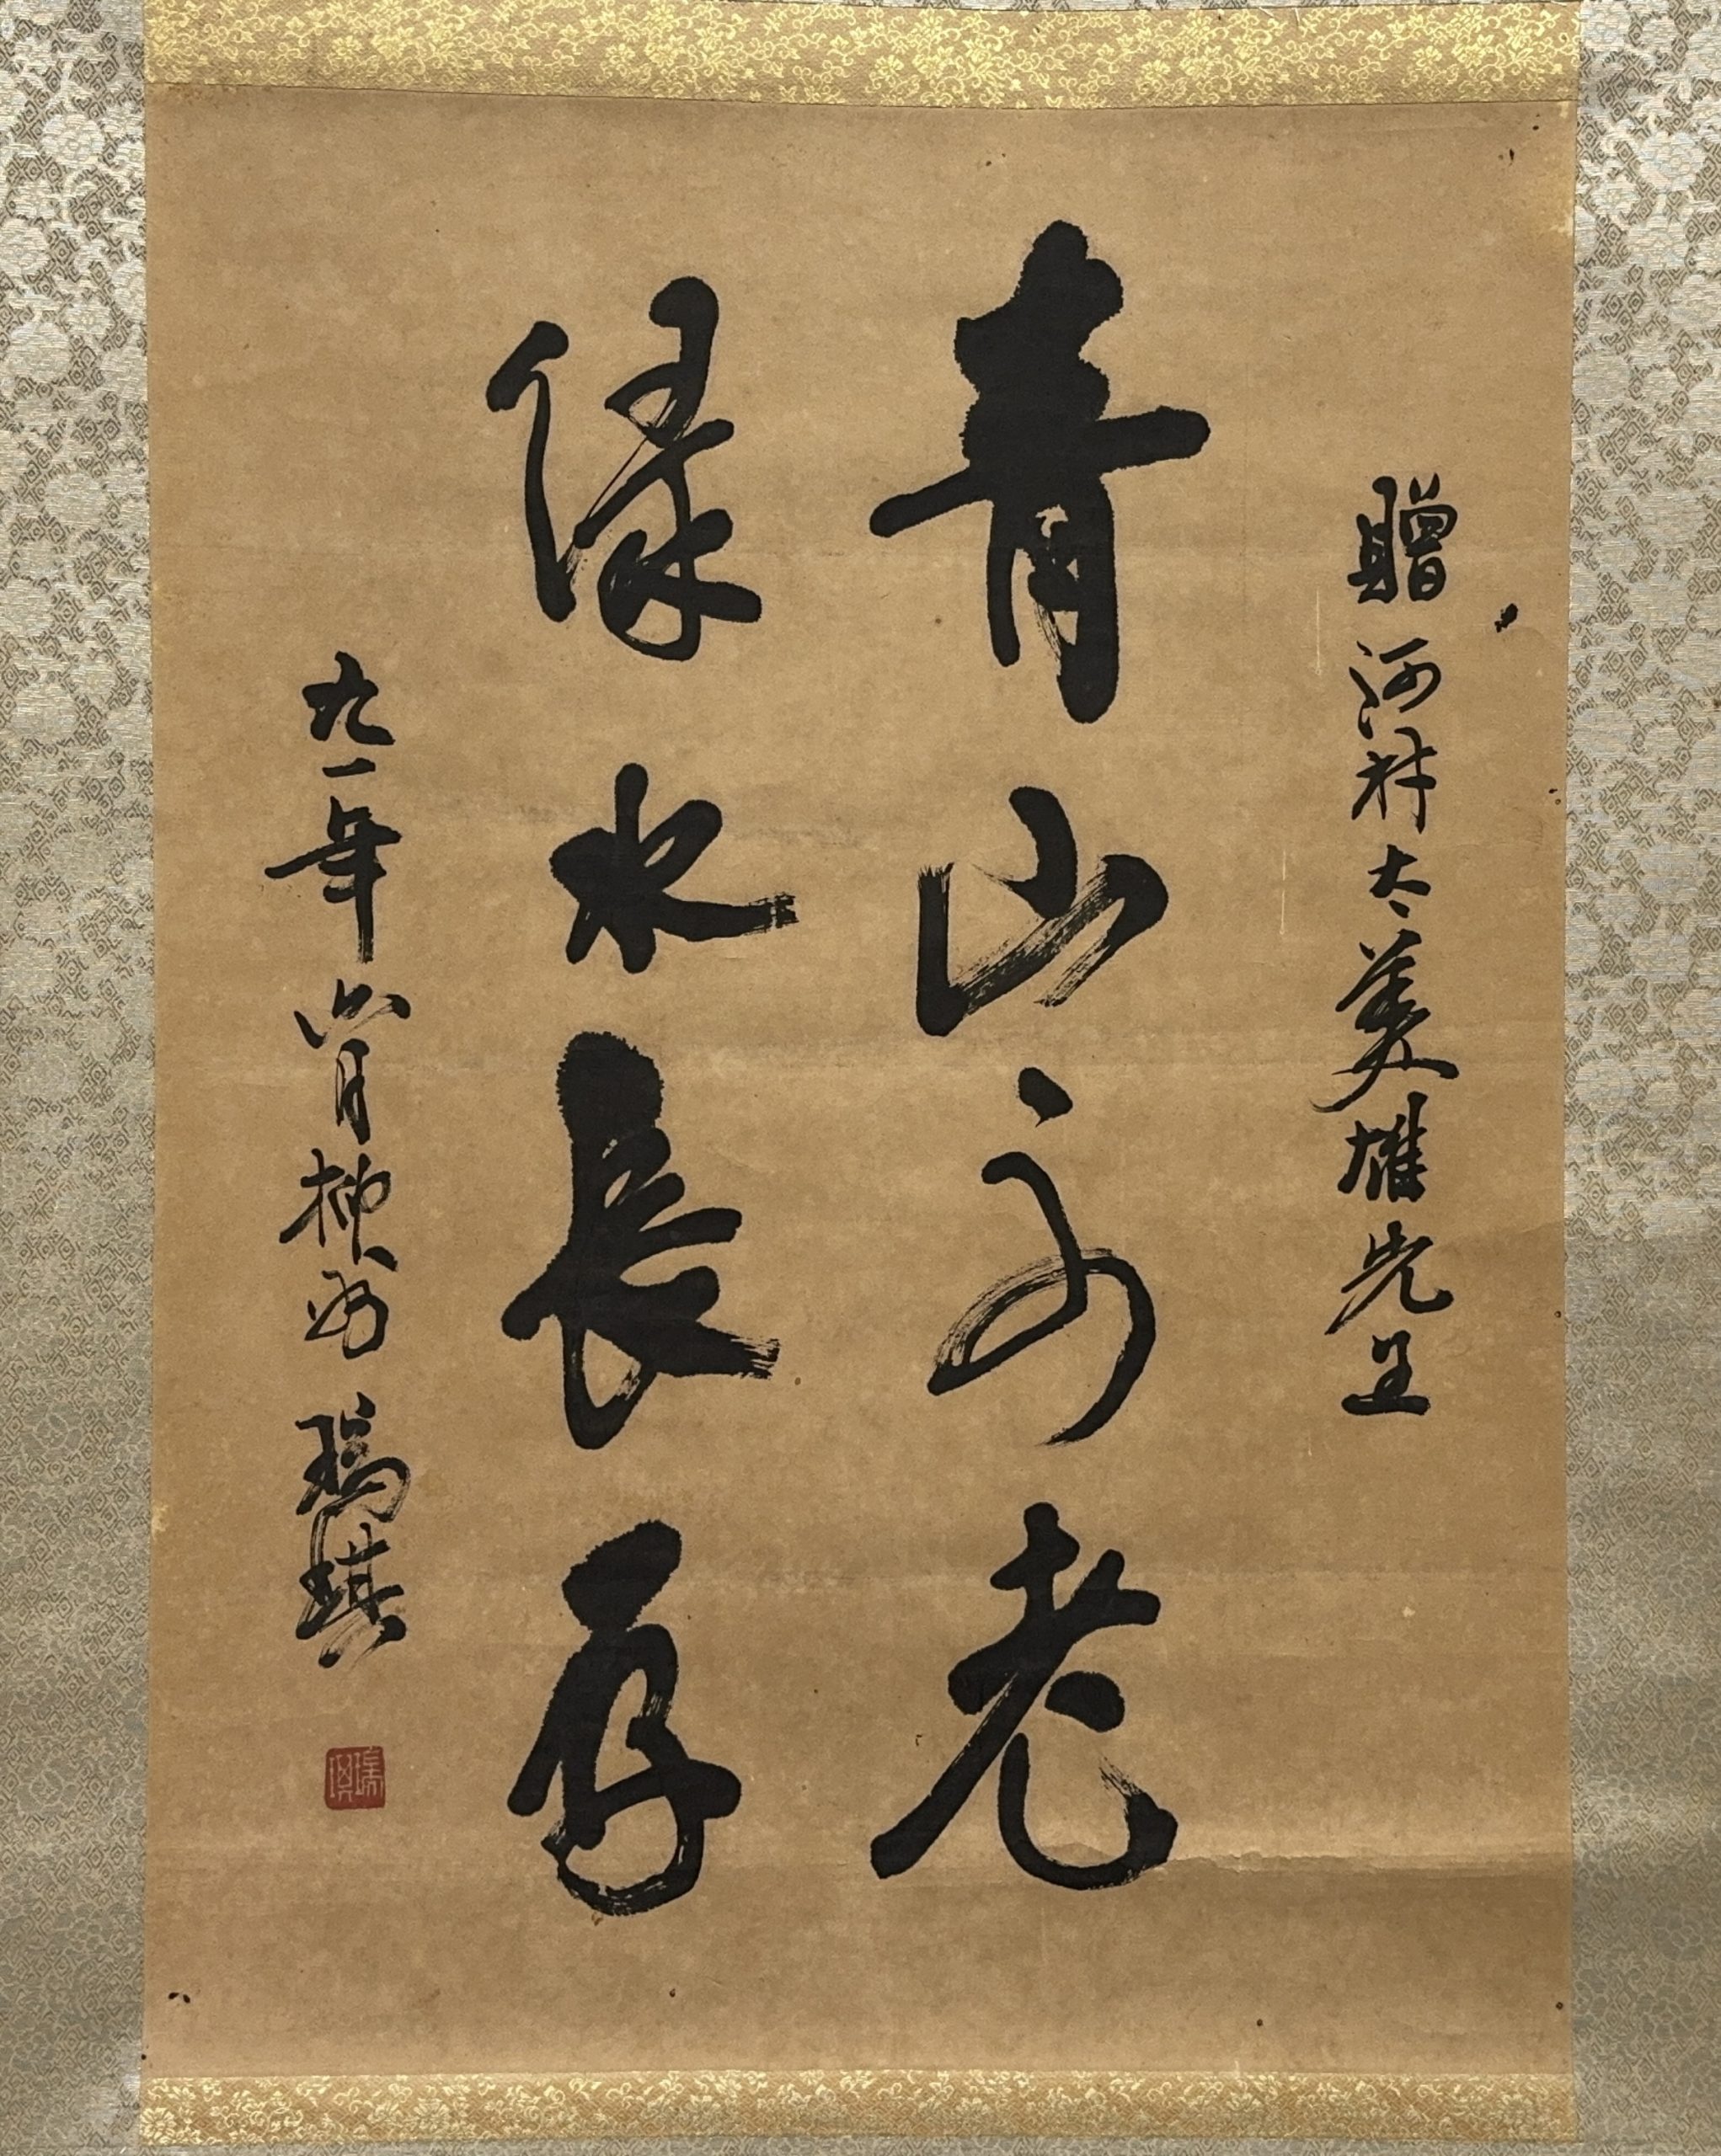 贈河村太美雄先生
青山不老
绿水長存
九一年六月柳州瑞琪